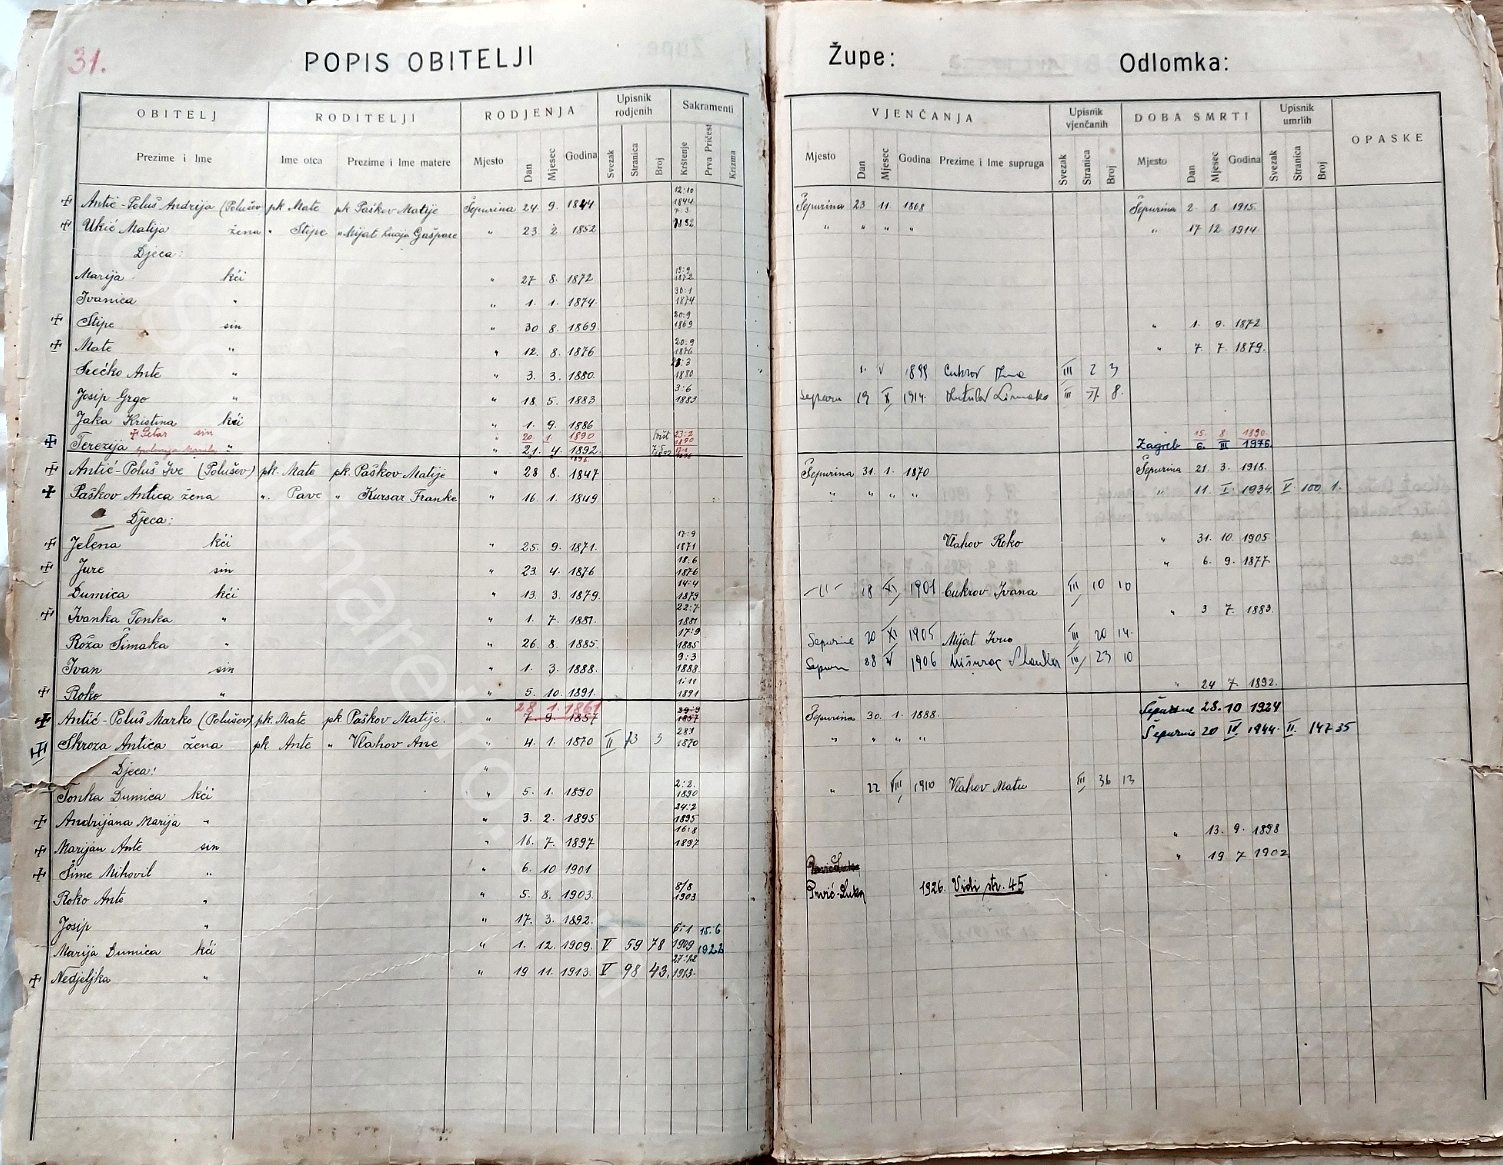 31. POPIS OBITELJI Župe: Odlomka:
OBITELJ RODITELJI RODJENJA Upisnik rodjenih Sakramenti VJENČANJA Upisnik vjenčanih DOBA SMRTI Upisnik umrlih OPASKE
Prezime i Ime Ime otca Prezime i Ime matere Mjesto Dan Mjesec Godina Svezak Stranica Broj Krštenje Prva Pričest Krizma Mjesto Dan Mjesec Godina Prezime i Ime supruga Svezak Stranica Broj Mjesto Dan Mjesec Godina Svezak Stranica Broj
Antić-Poluš Andrija (Polušov pk Mate pk Paškov Matije Šepurina 24 9. 1844 12.10 1844 Šepurina 23 11. 1868 Šepurina 2. 8. 1915.
Ukić Matija žena " Stipe " Mijat Gašpare " 23 2. 1852 7.3 1852 " " " " " 17 12 1914
Djeca:
Marija kći " 27 8. 1872 1872
Ivanica " " 1. 1. 1874. 30.1 1874
Stipe sin " 30 8. 1869 20.9 1869 " 1. 9. 1872
Mate " " 12. 8. 1876 20.9 1876 " 7. 7. 1879.
Srećko Ante " " 3. 3. 1880. 1880 " V 1899 Cukrov III 2 3
Josip Grgo " " 18 5. 1883 3.6 1883 19 X 1914 III 8.
Jaka Kristina kći " 1. 9. 1886
Petar sin " 20. 1 1890 23.2 1890 15. 8. 1890
Terezija " " 21. 4. 1892. Zagreb 6. III 1976.
Antić-Poluš Ive (Polušov) pk. Mate pk Paškov Matije " 28 8. 1847 Šepurina 31. 1. 1870 Šepurina 21. 3. 1918.
Paškov Antica žena " Pave " Kursar Franke " 16 1. 1849 " " " " " 11 I 1934 V 100 1.
Djeca:
Jelena kći " 25. 9. 1871. 17.9 1871 Vlahov Roko " 31. 10. 1905
Jure sin " 23 4. 1876 18.6 1876 " 6. 9. 1877.
Dumica kći " 13. 3. 1879. 14.4 1879 -"- 18 XI 1901 Cukrov Ivana III 10 10
Ivanka Tonka " " 1. 7. 1881. 22.7 1881 " 3 7. 1883.
Roža Šimaka " " 26 8. 1885. 17.9 1885 Sepurine 20 XI 1905 Mijat III 20 14.
Ivan sin " 1. 3. 1888. 9.3 1888 28 V 1906 III 23 10
Roko " " 5. 10. 1891. 1.11 1891 " 24 7. 1892.
28 1. 1861
Antić-Poluš Marko (Polušov) pk. Mate pk Paškov Matije. " 7 9. 1857 1857 Šepurina 30. 1. 1888. Šepurine 28. 10 1924
Skroza Antica žena pk Ante " Vlahov Ane " 4. 1. 1870 II 73 3 1870 " " " " Šepurine 20 IV 1944. II. 147 35
Djeca: "
Tonka Dumica kći " 5. 1. 1890 2.2. 1890 " 22 VIII 1910 Vlahov Mate III 36 13
Andrijana Marija " " 3. 2. 1895 24.2 1895
Marijan Ante sin " 16. 7. 1897 16.8 1897 " 13. 9. 1898
Šime Mihovil " " 6. 10 1901 " 19 7. 1902
Roko Ante " " 5. 8. 1903. 8/8 1903 Prvić-Luka 1926. Vidi str. 45
Josip " " 17. 3. 1892.
Marija Dumica kći " 1. 12. 1909. V 59 78 6.1 1909 15.6 1922
Nedjeljka " " 19 11. 1913. V 98 43, 27.12 1913.